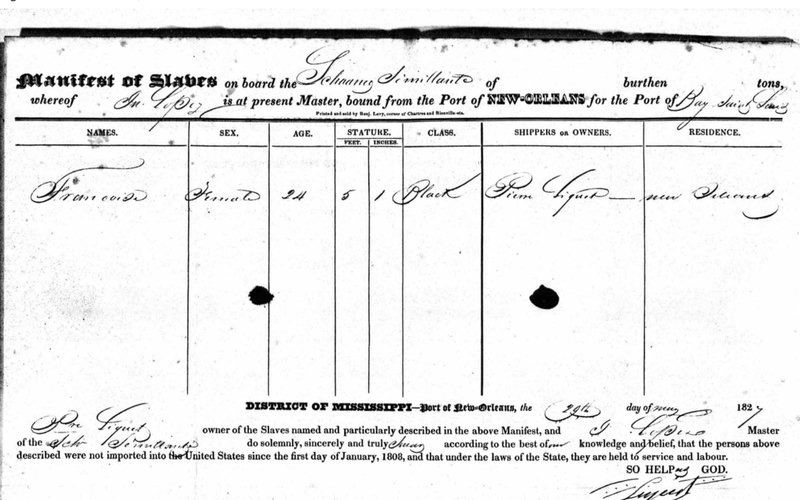 Manifest of Slaves on board the Schooner Simillante of burthen tons,
whereof Jn. Lopez is at present Master, bound from the Port of NEW-ORLEANS for the Port of Bay Saint Louis
Printed and sold by Benj. Levy, corner of Chartres and Bienville-sts.
NAMES. SEX. AGE. STATURE. CLASS. SHIPPERS OR OWNERS. RESIDENCE.
FEET. INCHES.
Francoise Female 24 5 1 Black New Orleans
DISTRICT OF MISSISSIPPI—Port of New-Orleans, the 29th day of may 1827
owner of the Slaves named and particularly described in the above Manifest, and J Lopez Master
of the Schr Simillante do solemnly, sincerely and truly Swear according to the best of our knowledge and belief, that the persons above
described were not imported into the United States since the first day of January, 1808, and that under the laws of the State, they are held to service and labour.
SO HELP us GOD.